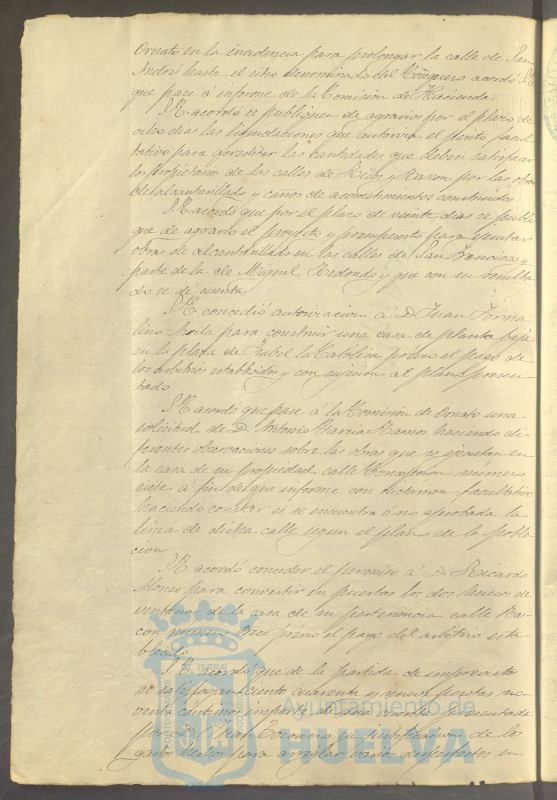 Ornato en la incidencia para prolongar la calle de San
Andrés hasta el sitio denominado del Conquero acordó S.E.
que pase a informe de la Comisión de Hacienda.
S.E. acordó se publiquen de agravios por el plazo de
ocho días las liquidaciones que autoriza el Perito facul
tativo para acreditar las cantidades que deban satisfacer
los propietarios de las calles de Ricos y Rascon por las obras
de alcantarillado y caños de acometimientos construidos
S.E. acordó que por el plazo de veinte días se publi
que de agravio el proyecto y presupuesto para ejecutar
obras de alcantarillado en las calles de San Francisco y
parte de la de Miguel Redondo y que con su resulta
do se dé cuenta
S.E. concedió autorizacion á D. Juan
para construir una casa de planta baja
en la plaza de Isabel la Católica previo el pago de
los arbitrios establecidos y con sujeción al plano presen
tado
S.E. acordó que pase á la Comisión de Ornato una
solicitud de D. Antonio Garcia Ramos haciendo di
ferentes observaciones sobre las obras que se ejecutan en
la casa de su propiedad calle Concepcion número
siete á fin de que informe con dictamen facultativo
haciendo constar si se encuentra ó no aprobada la
linea de dicha calle segun el plano de la pobla
cion
S.E. acordó conceder el permiso á D. Ricardo
Alonso para convertir en puertas los dos huecos de
ventanas de la casa de su pertenencia calle Ras-
con número once previo el pago del arbitrio esta
blecido
S.E. acordó que de la partida de imprevistos
se satisfagan ciento cuarenta y nueve pesetas no
venta centimos importe de una cuenta presentada
por D. en justificacion de los
gastos hechos para arreglar varios desperfectos en
Ayuntamiento de
HUELVA